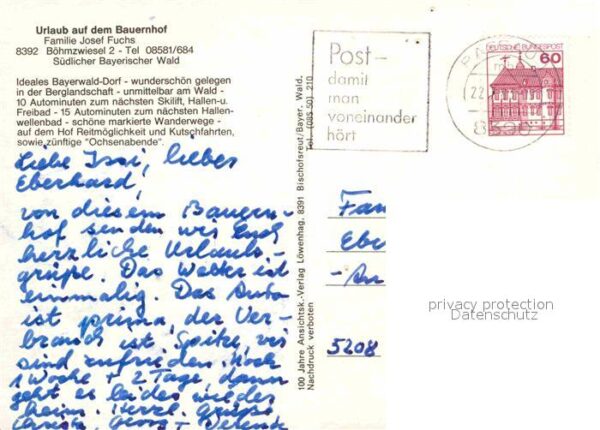 Urlaub auf dem Bauernhof
Familie Josef Fuchs
8392 Böhmzwiesel 2 - Tel 08581/684
Südlicher Bayerischer Wald
Ideales Bayerwald-Dorf - wunderschön gelegen
in der Berglandschaft - unmittelbar am Wald -
10 Autominuten zum nächsten Skilift, Hallen-u.
Freibad - 15 Autominuten zum nächsten Hallen-
wellenbad - schöne markierte Wanderwege -
auf dem Hof Reitmöglichkeit und Kutschfahrten,
sowie zünftige "Ochsenabende".
Liebe Issi, liebes
Eberhard,
von diesem Bauern-
hof senden wir Euch
herzliche Urlaubs-
grüße. Das Wetter ist
einmalig. Das Auto
ist prima, der Ver-
brauch ist Spitze, wir
sind zufrieden. Noch
1 Woche + 2 Tage dann
geht es leider wieder
heim. Herzl. Grüße
Georg +
100 Jahre Ansichtsk.-Verlag Löwenhag, 8391 Bischofsreut/Bayer. Wald,
Tel. (085 50) 210
Nachdruck verboten
Post-
damit
man
voneinander
hört
DEUTSCHE BUNDESPOST
60
22
8390
Fam
Ebe
An
5208
privacy protection
Datenschutz